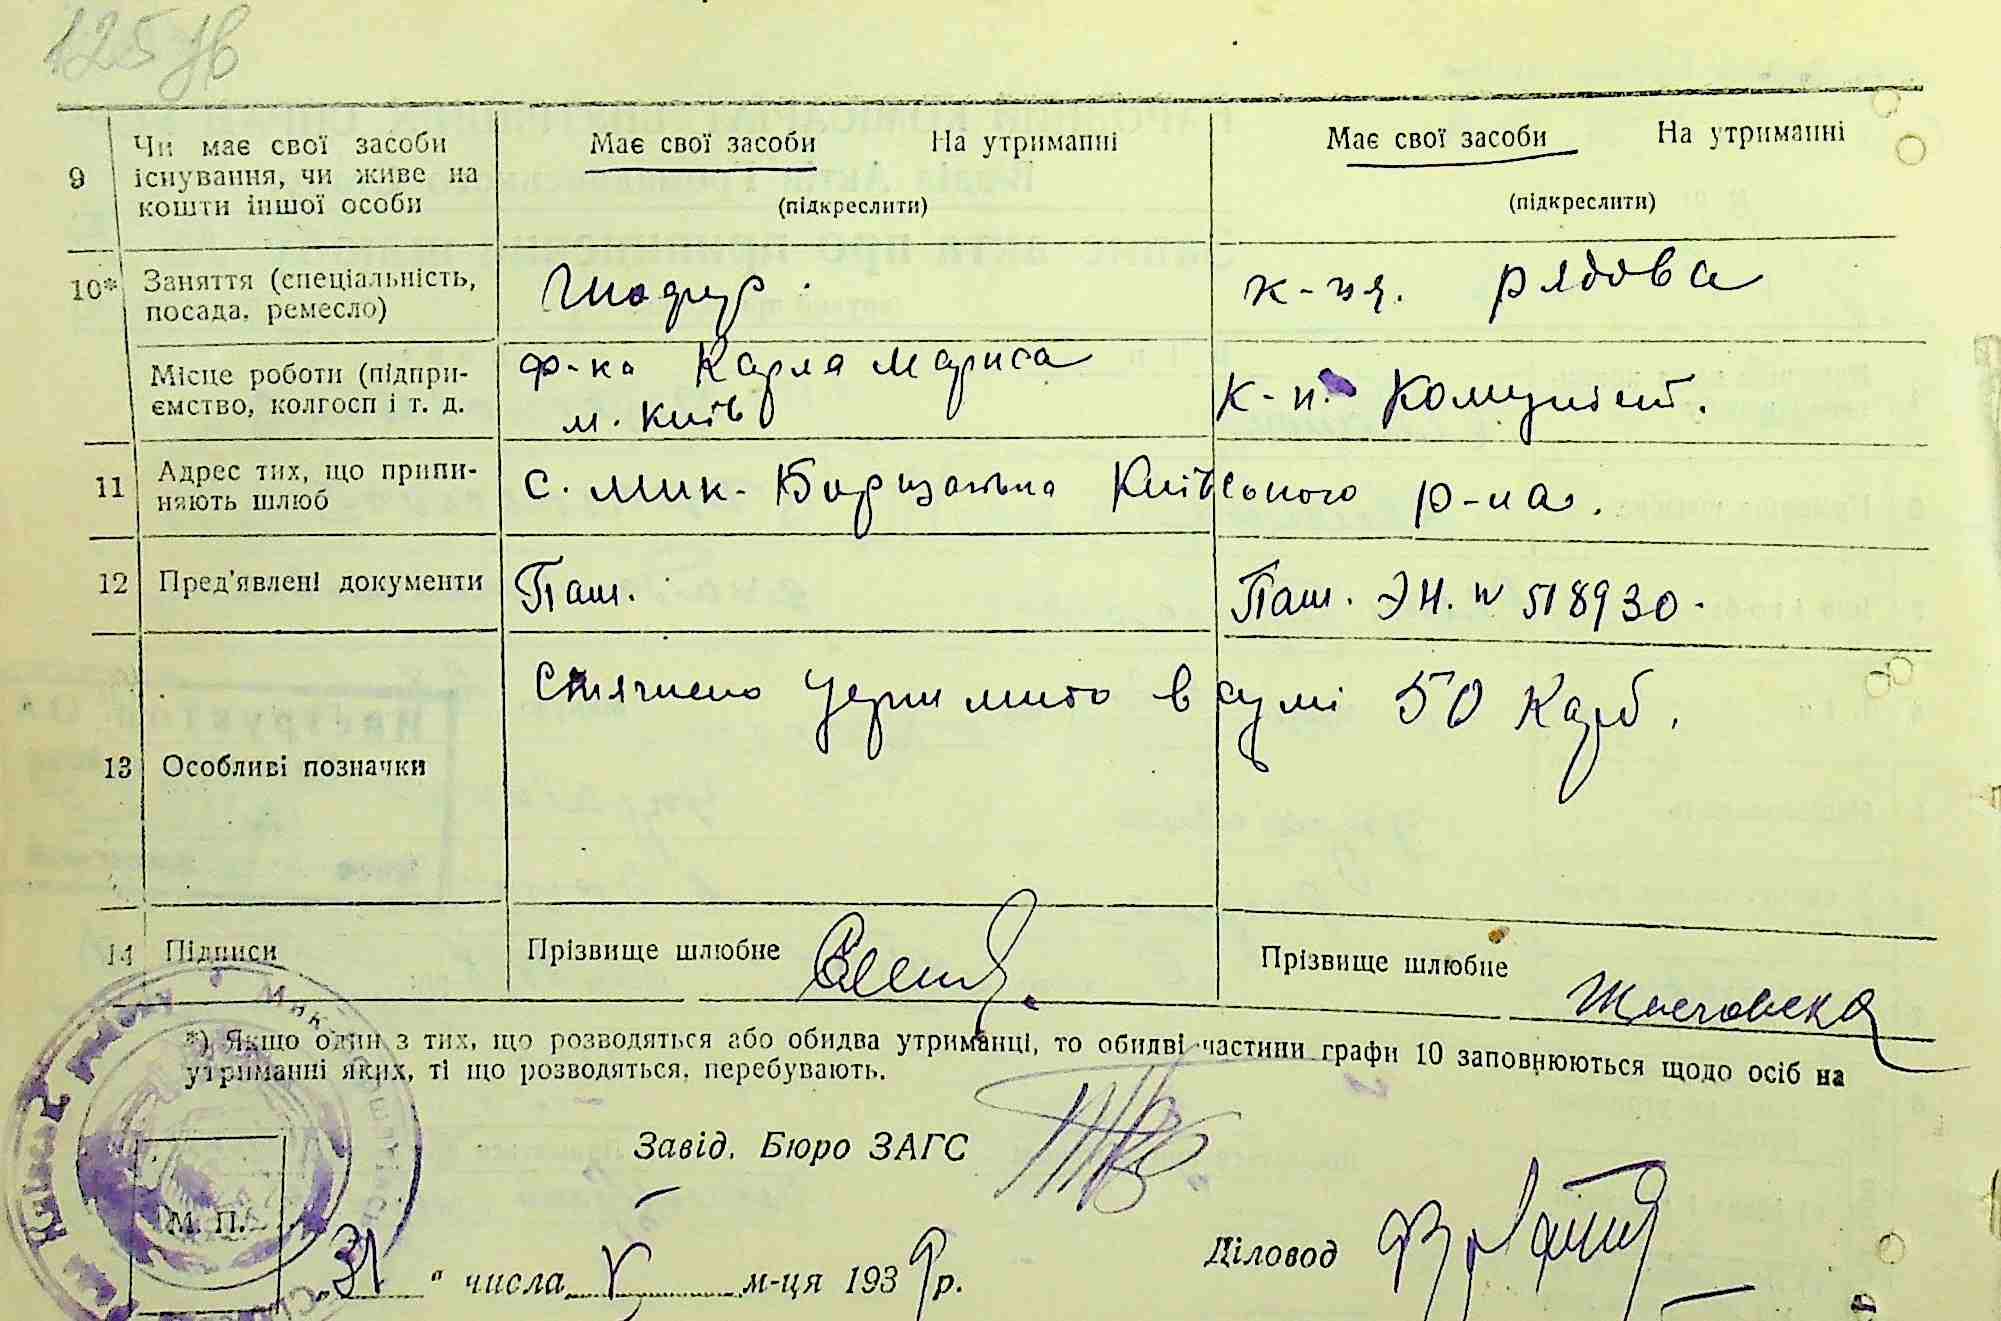 125
9 Чи має свої засоби існування, чи живе на кошти іншої особи
Має свої засоби На утриманні
(підкреслити)
Має свої засоби На утриманні
(підкреслити)
10* Заняття (спеціальність, посада, ремесло)
Шофер.
к-ця. рядова
Місце роботи (підпри-
ємство, колгосп і т. д.
ф-ка Карла Маркса
м. Київ
к-п. Комуніст.
11 Адрес тих, що припи-
няють шлюб
с. Мик-Борщагівка Київського р-на.
12 Пред'явлені документи
Паш.
Паш. ЭН. № 518930.
13 Особливі позначки
Стягнено мито в сумі 50 Карб.
14 Підписи
Прізвище шлюбне
Прізвище шлюбне
*) Якщо один з тих, що розводяться або обидва утриманці, то обидві частини графи 10 заповнюються щодо осіб на
утриманні яких, ті що розводяться, перебувають.
Завід. Бюро ЗАГС
М. П.
„31" числа V м-ця 1939р.
Діловод